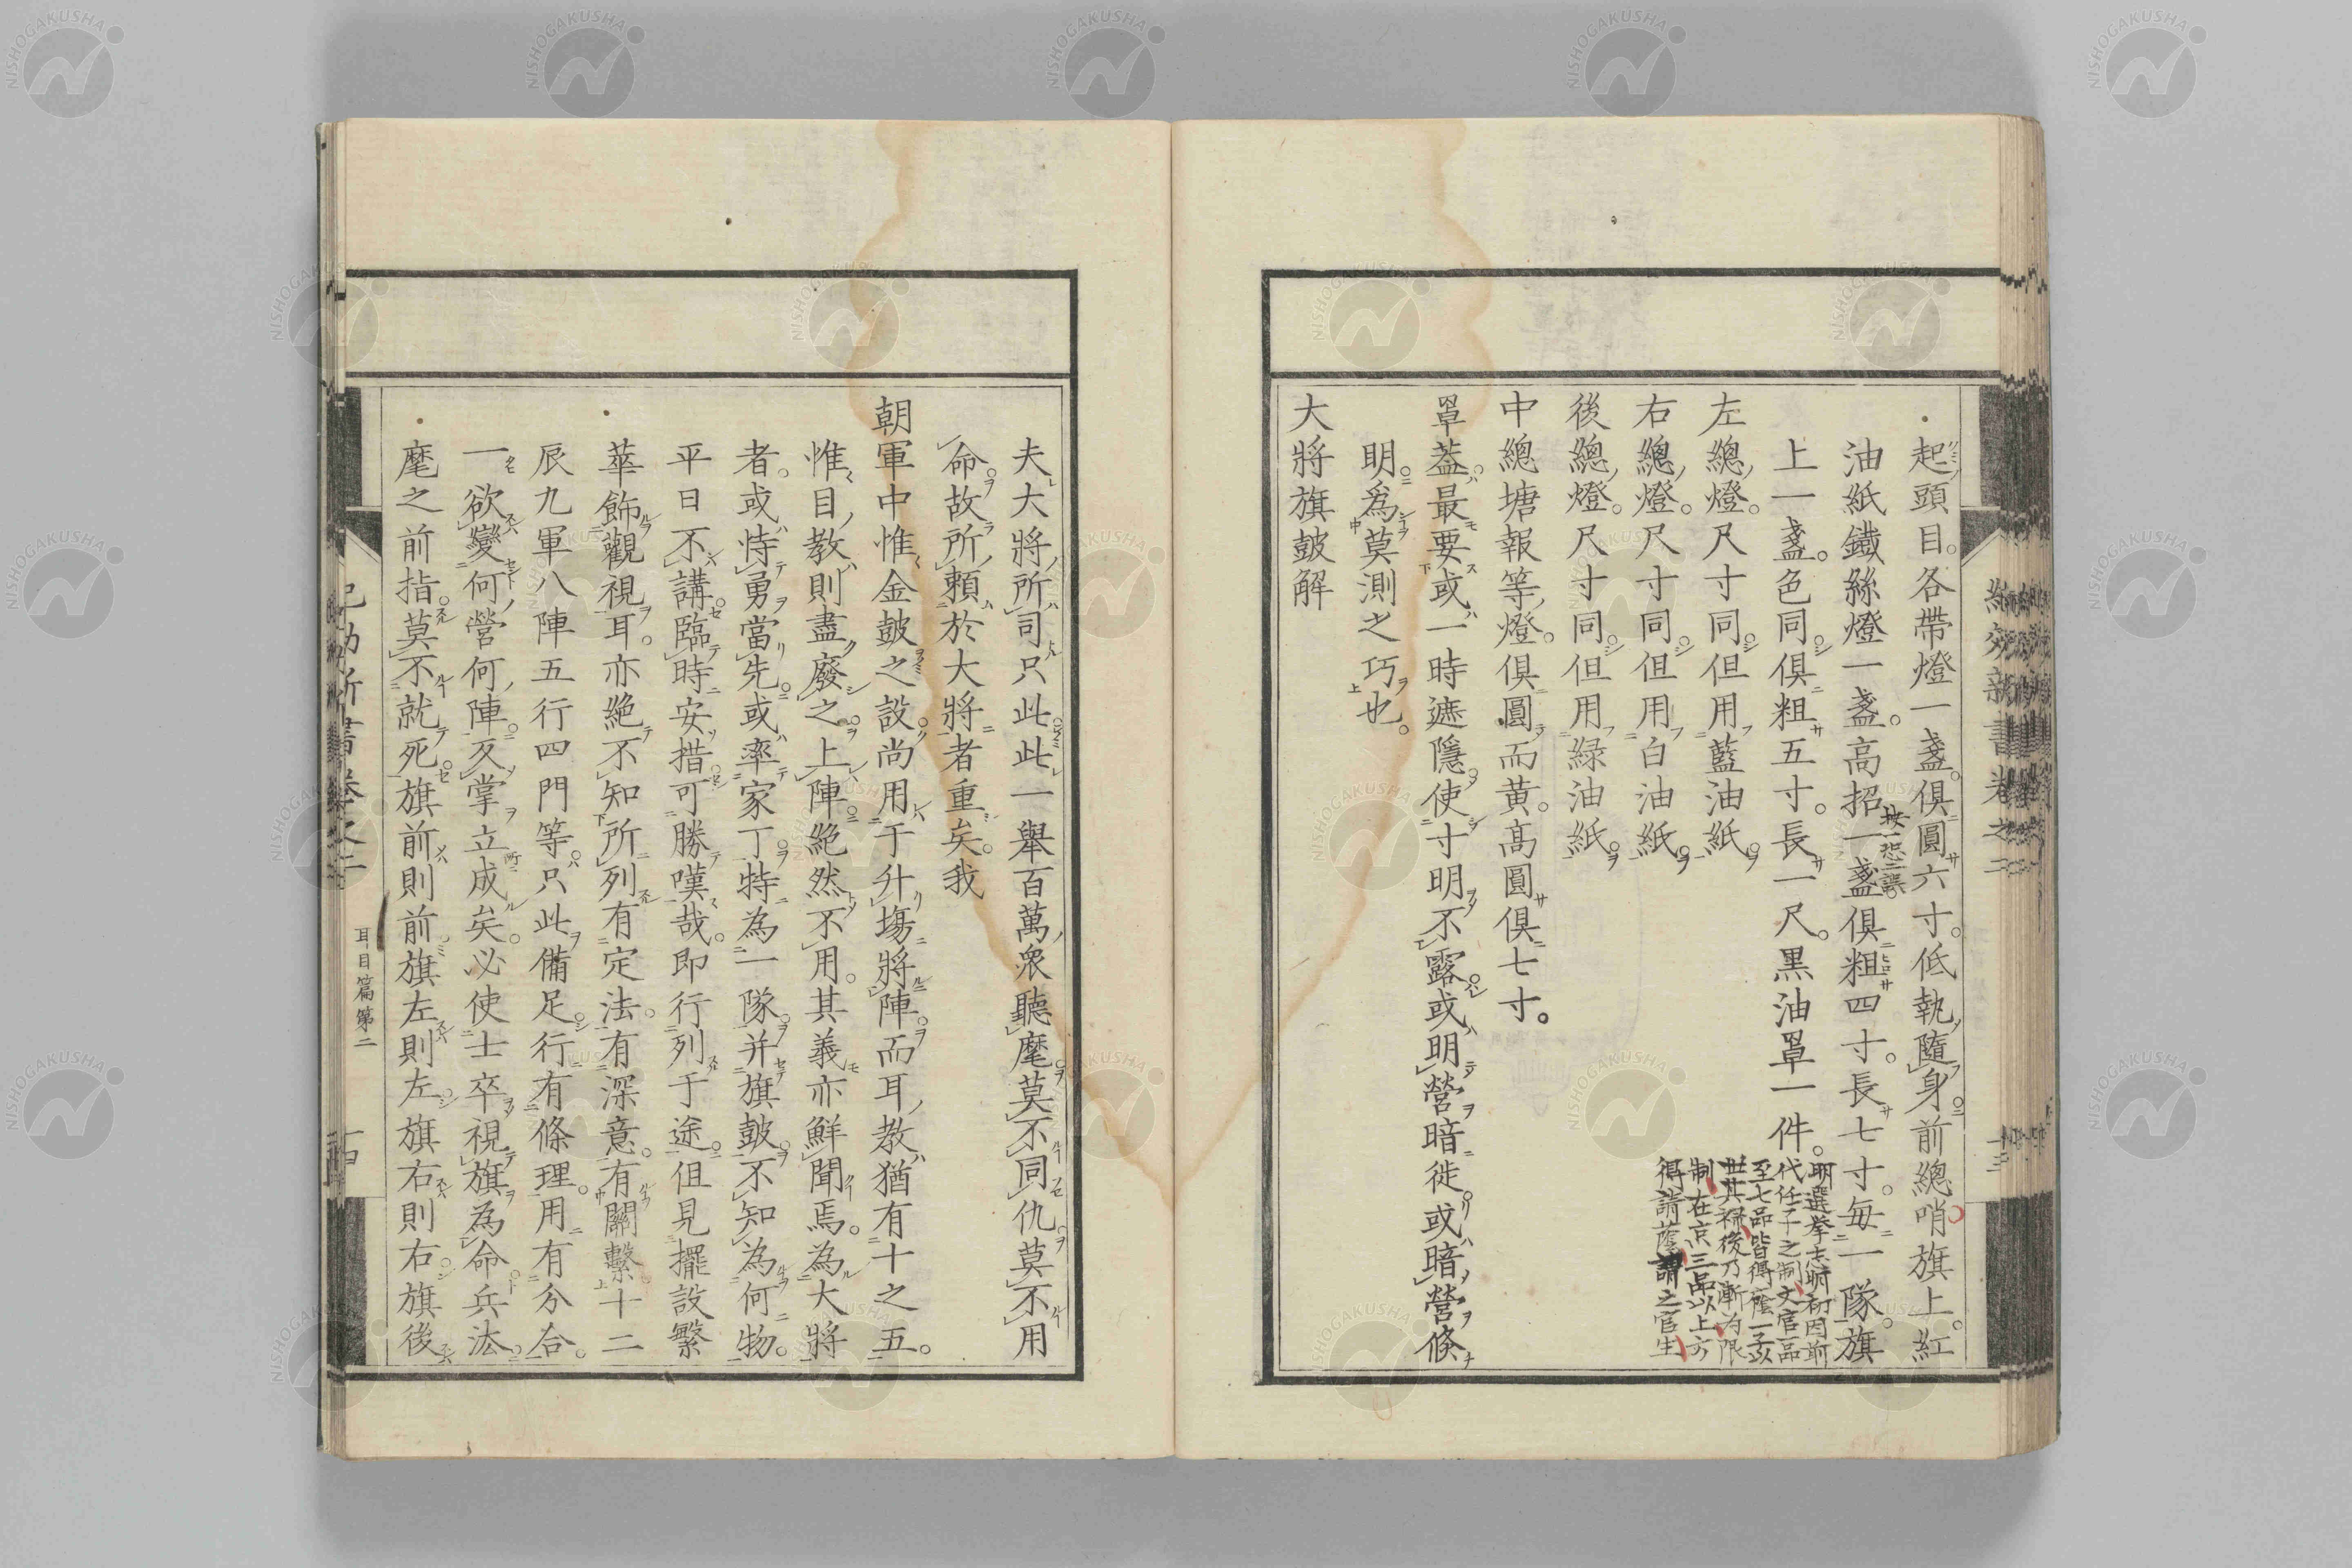 起頭目各帶燈一盞俱圓六寸低執隨身前總哨旗上紅
油紙鐵絲燈一盞高招一盞俱粗四寸長七寸毎一隊旗
按一恐二誤
上一盞色同俱粗五寸長一尺黒油罩一件
明選挙志明初因前
代任子之制文官一品
至七品皆得蔭一子以
世其禄後乃漸為限
制在京三品以上方
得請蔭謂之官生
左總燈尺寸同但用藍油紙
右總燈尺寸同但用白油紙
後總燈尺寸同但用緑油紙
中總塘報等燈俱圓而黄高圓俱七寸
罩葢最要或一時遮隱使寸明不露或明營暗徙或暗營倏
明爲莫測之巧也
大將旗鼓解
紀効新書卷之二
夫大將所司只此此一舉百萬衆聽麾莫不同仇莫不用
命故所頼於大將者重矣我
朝軍中惟金鼓之設尚用于升塲將陣而耳教猶有十之五
惟目教則盡廢之上陣絶然不用其義亦鮮聞焉為大將
者或恃勇當先或率家丁特為一隊并旗鼓不知為何物
平日不講臨時安措可勝嘆哉即行列于途但見擺設繁
華飾觀視耳亦絶不知所列有定法有深意有關繫十二
辰九軍八陣五行四門等只此備足行有條理用有分合
一欲變何營何陣反掌立成矣必使士卒視旗為命兵法
麾之前指莫不就死旗前則前旗左則左旗右則右旗後
紀効新書卷之二
耳目篇第二
十四
NISHOGAKUSHA